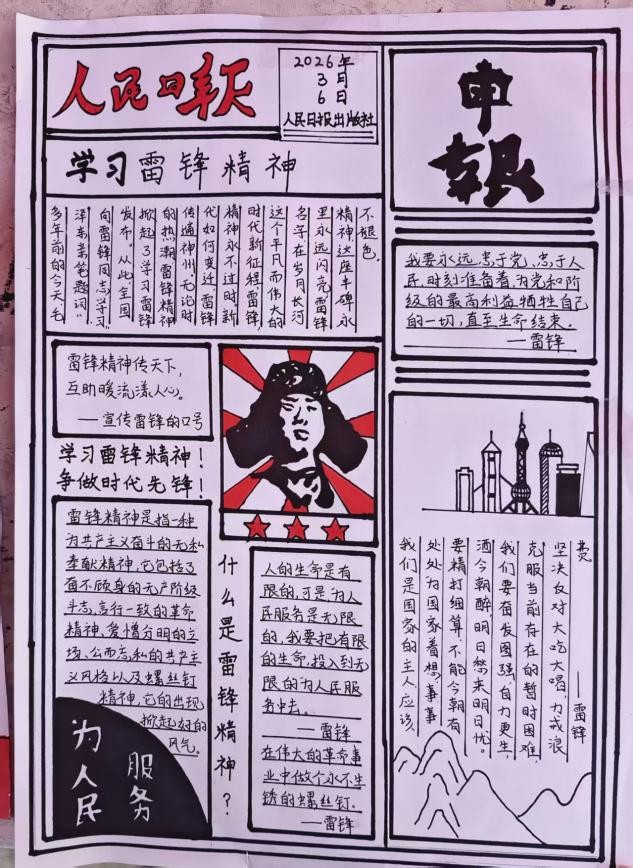 人民日报
2026年
3月
6日
人民日报出版社
学习雷锋精神
多年前的今天,毛
泽东亲笔题词"
向雷锋同志学习"
发布。从此,全国
掀起了学习雷锋
的热潮雷锋精神
传遍神州。无论时
代如何变迁,雷锋
精神永不过时新
时代新征程,雷锋
这个平凡而伟大的
名字在岁月长河
里永远闪亮雷锋
精神,这座丰碑,永
不褪色.
雷锋精神传天下,
互助暖流漾人心。
——宣传雷锋的口号
学习雷锋精神!
争做时代先锋!
雷锋精神是指一种
为共产主义奋斗的无私
奉献精神,它包括了
奋不顾身的无产阶级
斗志,言行一致的革命
精神,爱憎分明的立
场、公而忘私的共产主
义风格以及螺丝钉
精神,它的出现
掀起好的
风气。
为人民
服务
什么是雷锋精神?
人的生命是有
限的,可是,为人
民服务是无限
的,我要把有限
的生命,投入到无
限的为人民服
务中去。
——雷锋
在伟大的革命事
业中做个永不生
锈的螺丝钉.
——雷锋
申报
我要永远,忠于党,忠于人
民,时刻准备着,为党和阶
级的最高利益,牺牲自己
的一切,直至生命结束.
——雷锋
我们是国家的主人,应该
处处为国家着想,事事
要精打细算,不能今朝有
酒今朝醉,明日愁来明日忧。
我们要奋发图强,自力更生
克服当前存在的暂时困难,
坚决反对大吃大喝,力戒浪
费
——雷锋